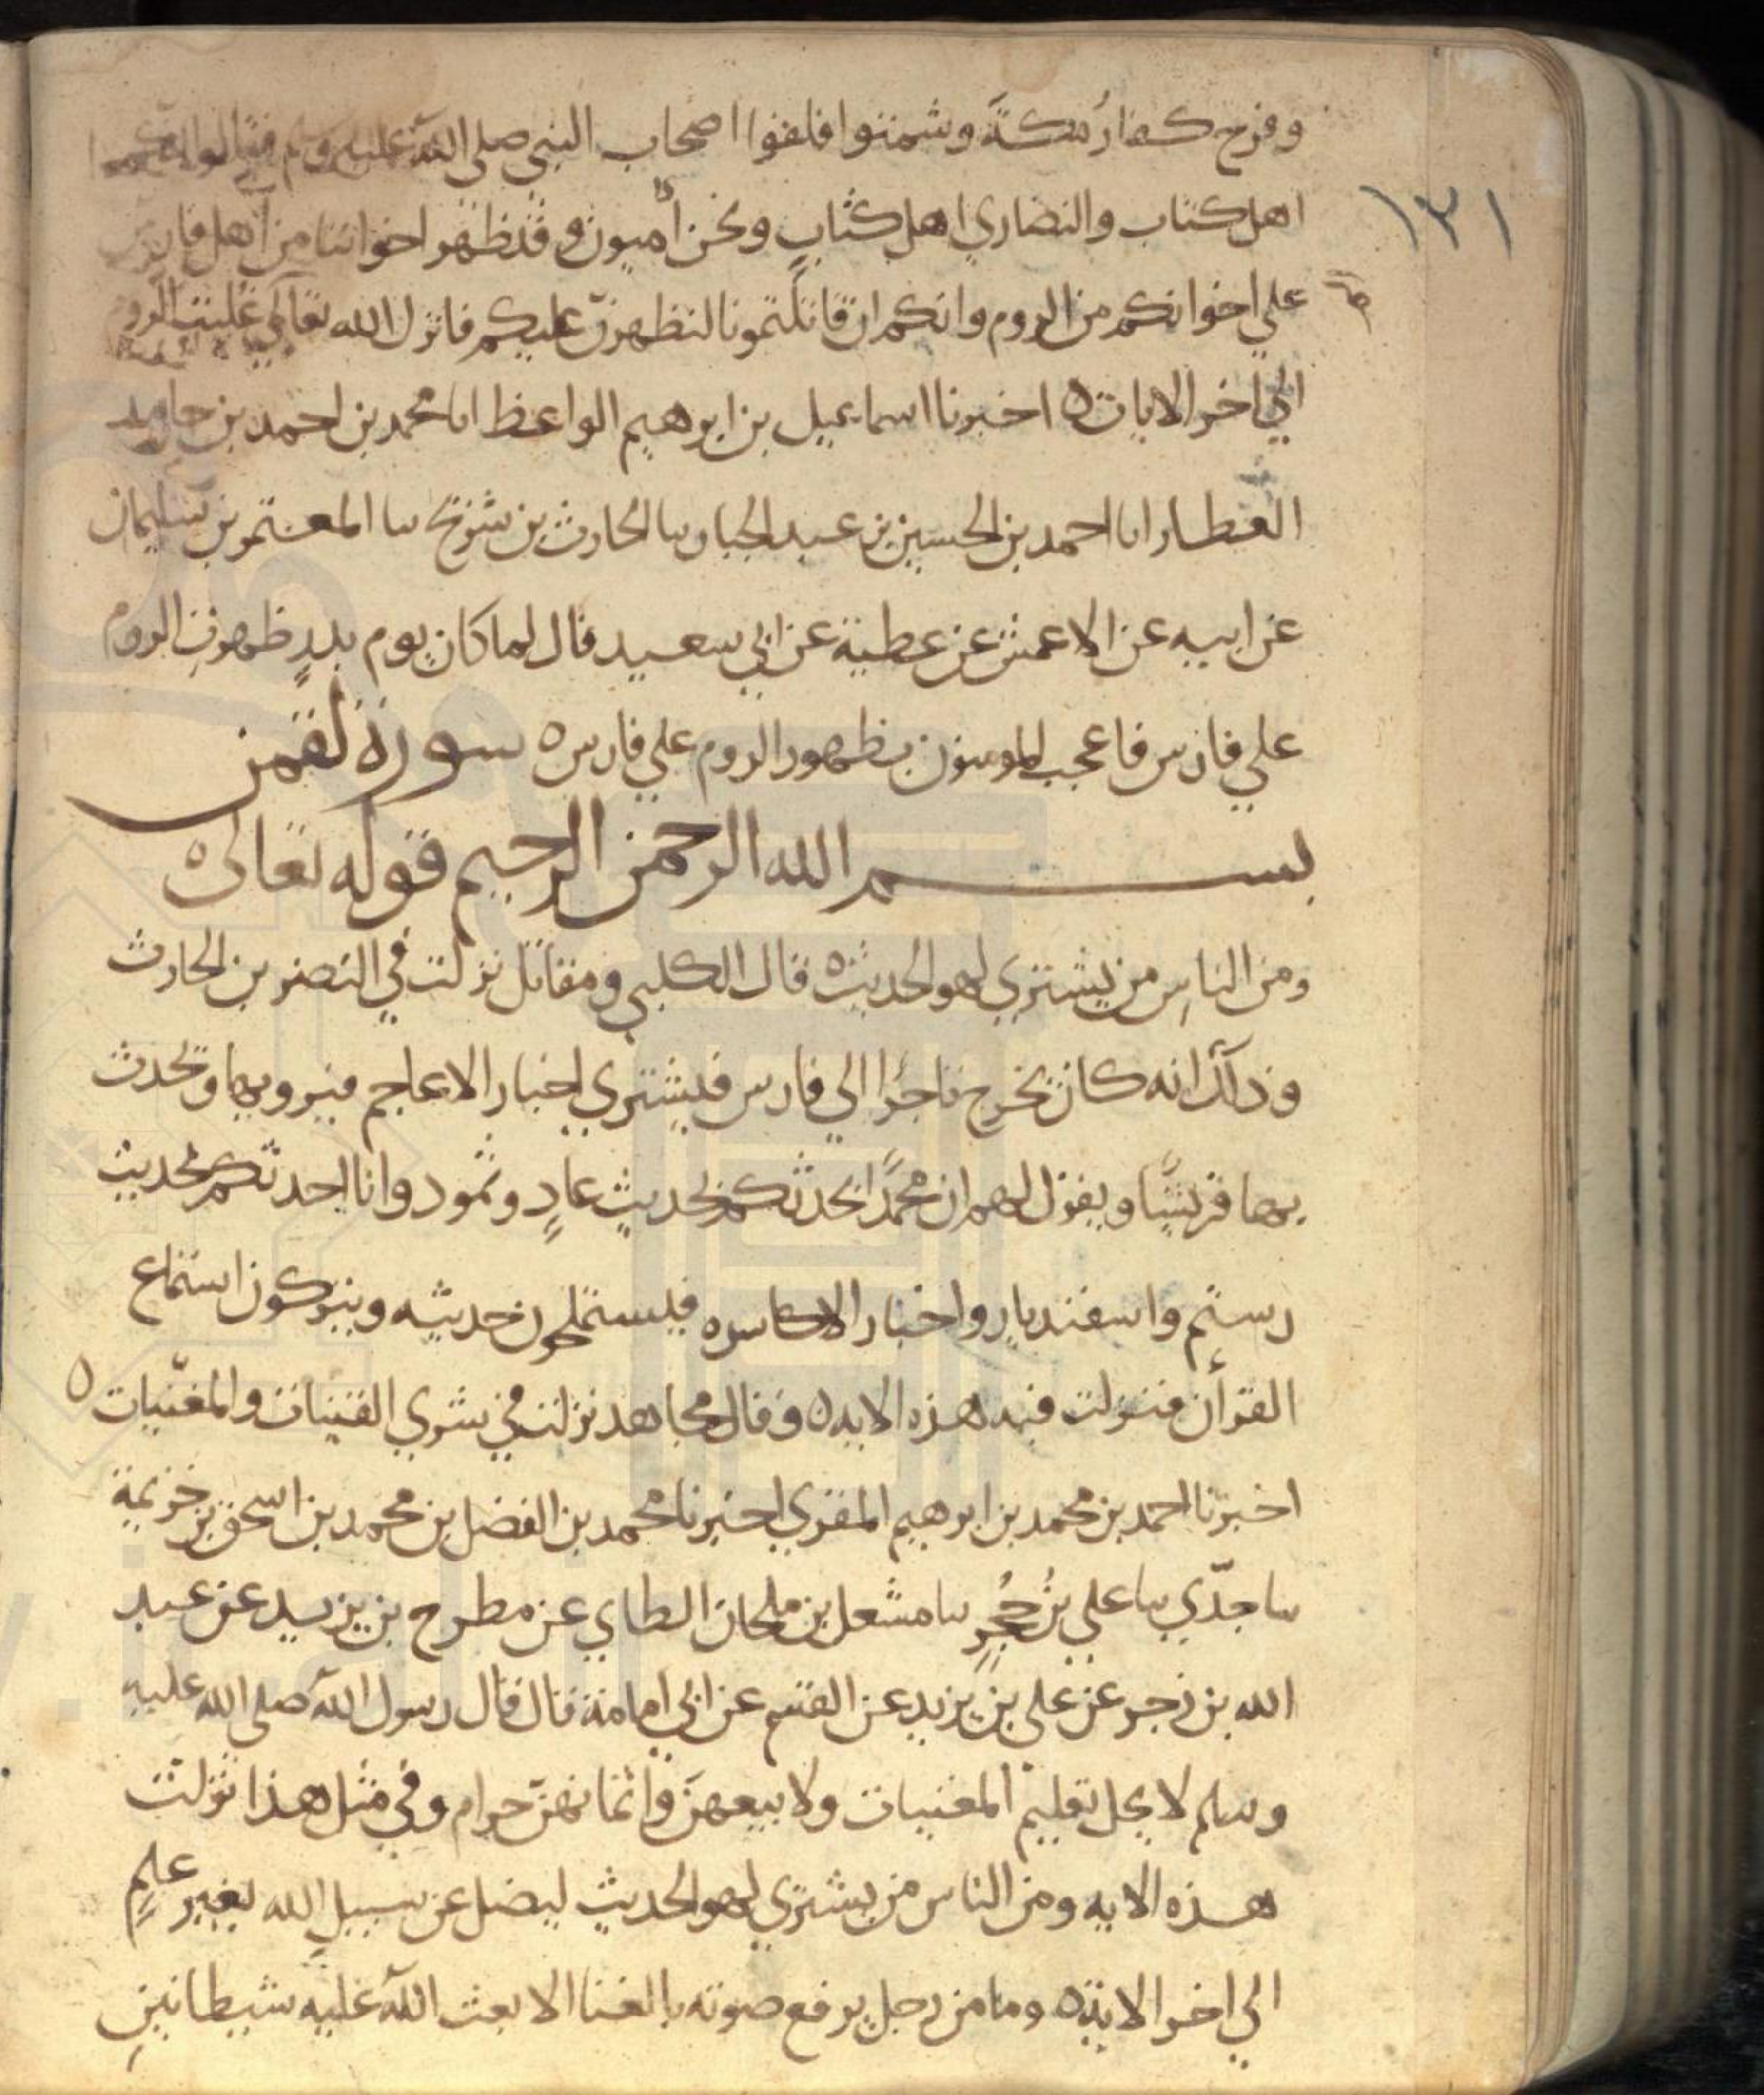 وفرح كفارُ مكةَ وشمتوا فلقوا اصحاب النبي صلى الله عليه وسلم فقالوا انكم
اهل كتاب والنصاري اهل كتابٍ ونحن أميون وقد ظهر اخواننا من أهل فارس
١٣١
علي اخوانكم من الروم وانكم ان قاتلتمونا لنظهرنّ عليكم فانزل الله تعالي غلبت الروم
الي اخر الايات ه اخبرنا اسماعيل بن ابرهيم الواعظ انا محمد بن احمد بن حامد
العطار انا احمد بن الحسين بن عبد الجبار سا الحارث بن شريح سا المعتمر بن سليمان
عن ابيه عن الاعمش عن عطية عن ابي سعيد قال لما كان يوم بدرٍ ظهرت الروم
علي فارس فاعجب المومنون بظهور الروم علي فارس ه سورة لقمن
بسم الله الرحمن الرحيم قوله تعالى ه
ومن الناسِ من يشتري لهو الحديث ه قال الكلبي ومقاتل نزلت في النضر بن الحارث
وذلك انه كان يخرج تاجرًا الي فارس فيشتري اخبار الاعاجم فيرويها ويحدث
بها قريشًا ويقول لهم ان محمدًا يحدثكم بحديث عادٍ وثمود وانا احدثكم بحديث
رستم واسفنديار واخبار الاكاسره فيستملحون حديثه ويتركون استماع
القرأن فنزلت فيه هذه الايه ه وقال مجاهد نزلت في شري القينات والمغنّيات ه
اخبرنا احمد بن محمد بن ابرهيم المقري اخبرنا محمد بن الفضل بن محمد بن اسحق بن خزيمة
سا جدّي سا علي بنُ حُجرٍ سا مشعل بن ملحان الطاي عن مطرح بن يزيد عن عبيد
الله بن زحر عن علي بن يزيد عن القسم عن ابي امامة قال قال رسول الله صلى الله عليه
وسلم لا يحل تعليم المغنيات ولا بيعهنّ واثمانهنّ حرام وفي مثل هذا نزلت
هذه الايه ومن الناس من يشتري لهو الحديثِ ليضل عن سبيلِ الله بغير علمٍ
الي اخر الاية ه وما من رجل يرفع صوته بالغنا الا بعث الله عليه شيطانينِ